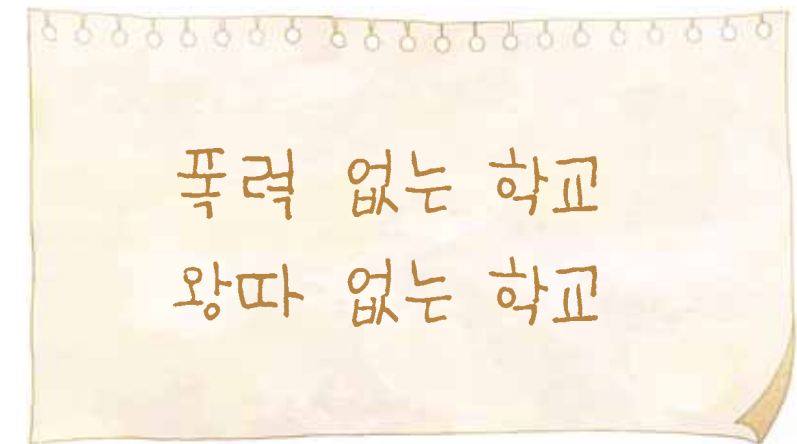 폭력 없는 학교
왕따 없는 학교